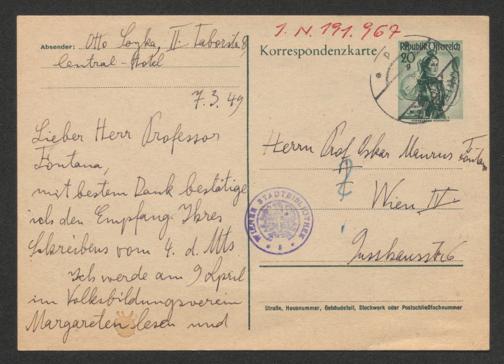 Absender: Otto Soyka, II. Taborstr. 8
Central-Hotel
7. 3. 49
Lieber Herr Professor
Fontana,
mit bestem Dank bestätige
ich den Empfang Ihres
Schreibens vom 4. d. Mts
Ich werde am 9 April
im Volksbildungsverein
Margareten lesen und
I. N. 191.967
Korrespondenzkarte
Republik Österreich
20
g
Herrn Prof Oskar Maurus Fontana
Wien IV
WIENER STADTBIBLIOTHEK
Straße, Hausnummer, Gebäudeteil, Stockwerk oder Postschließfachnummer